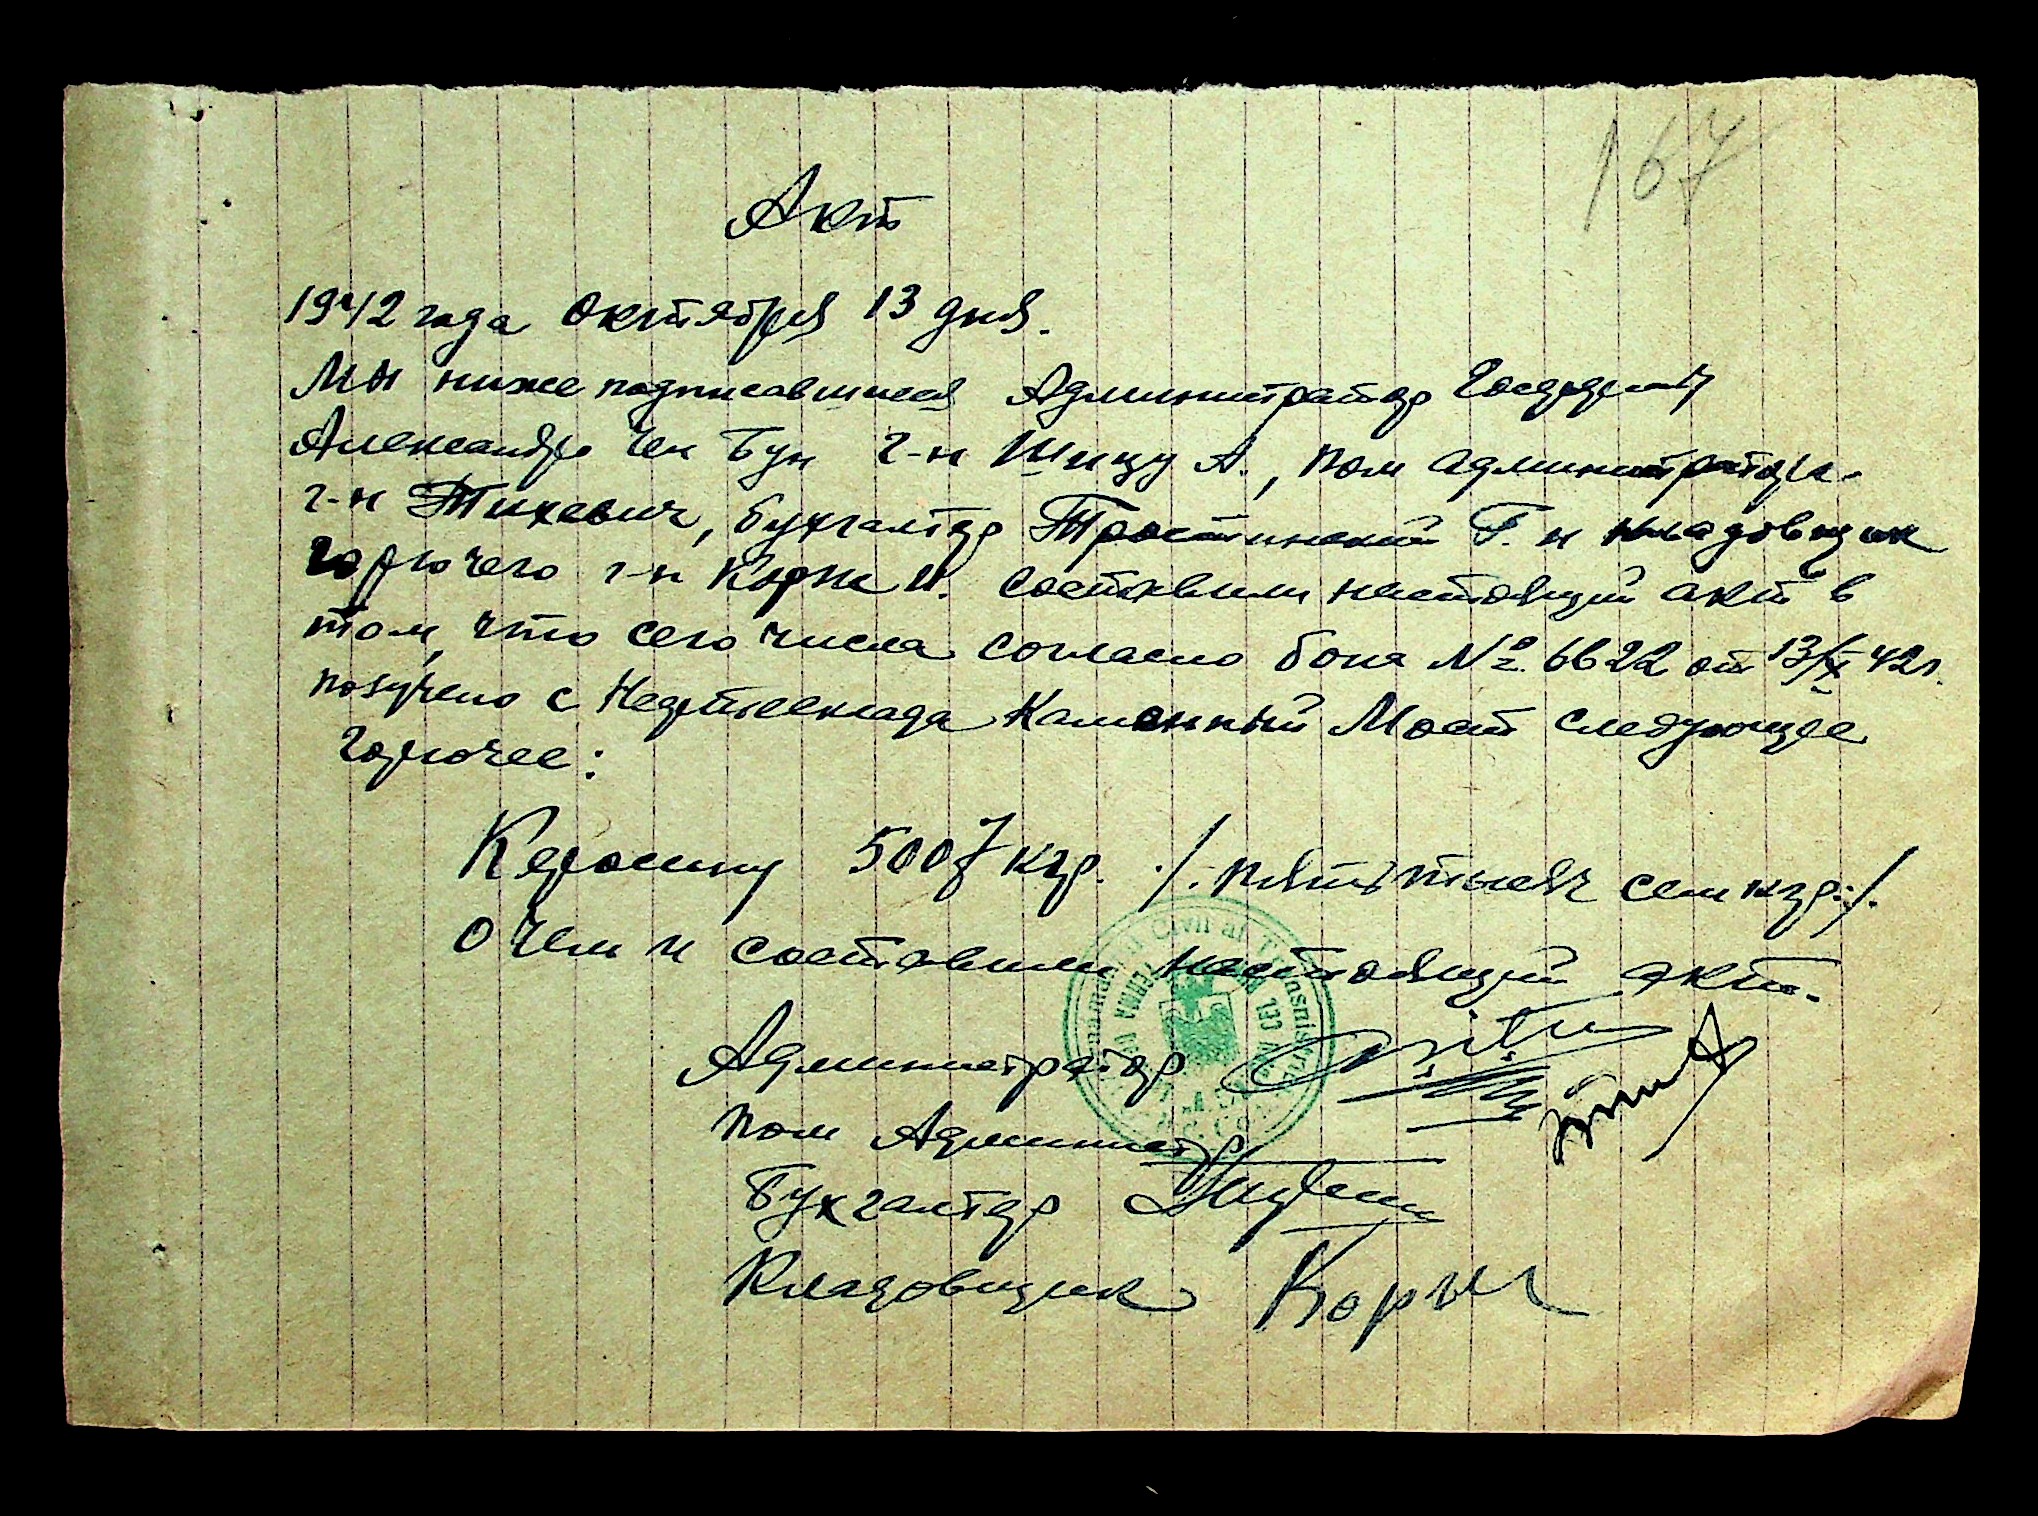 167
Акт
1942 года октября 13 дня.
Мы ниже подписавшиеся Администратор
Александр чел Бун г-н Шицу А., пом администратора
г-н Тихевич, бухгалтер Тростинский Г. и кладовщик
горючего г-н Корж И. составили настоящий акт в
том, что сего числа согласно бона № 6622 от 13/X 42 г.
получено с Нефтесклада Каменный Мост следующее
горючее:
Керосину 5007 кгр. ./. пять тысяч сем кгр. ./.
О чем и составили настоящий акт.
Civil al Transnistriei
FERMA CEL
Администратор
Пом Администр
Бухгалтер
Кладовщик Корж